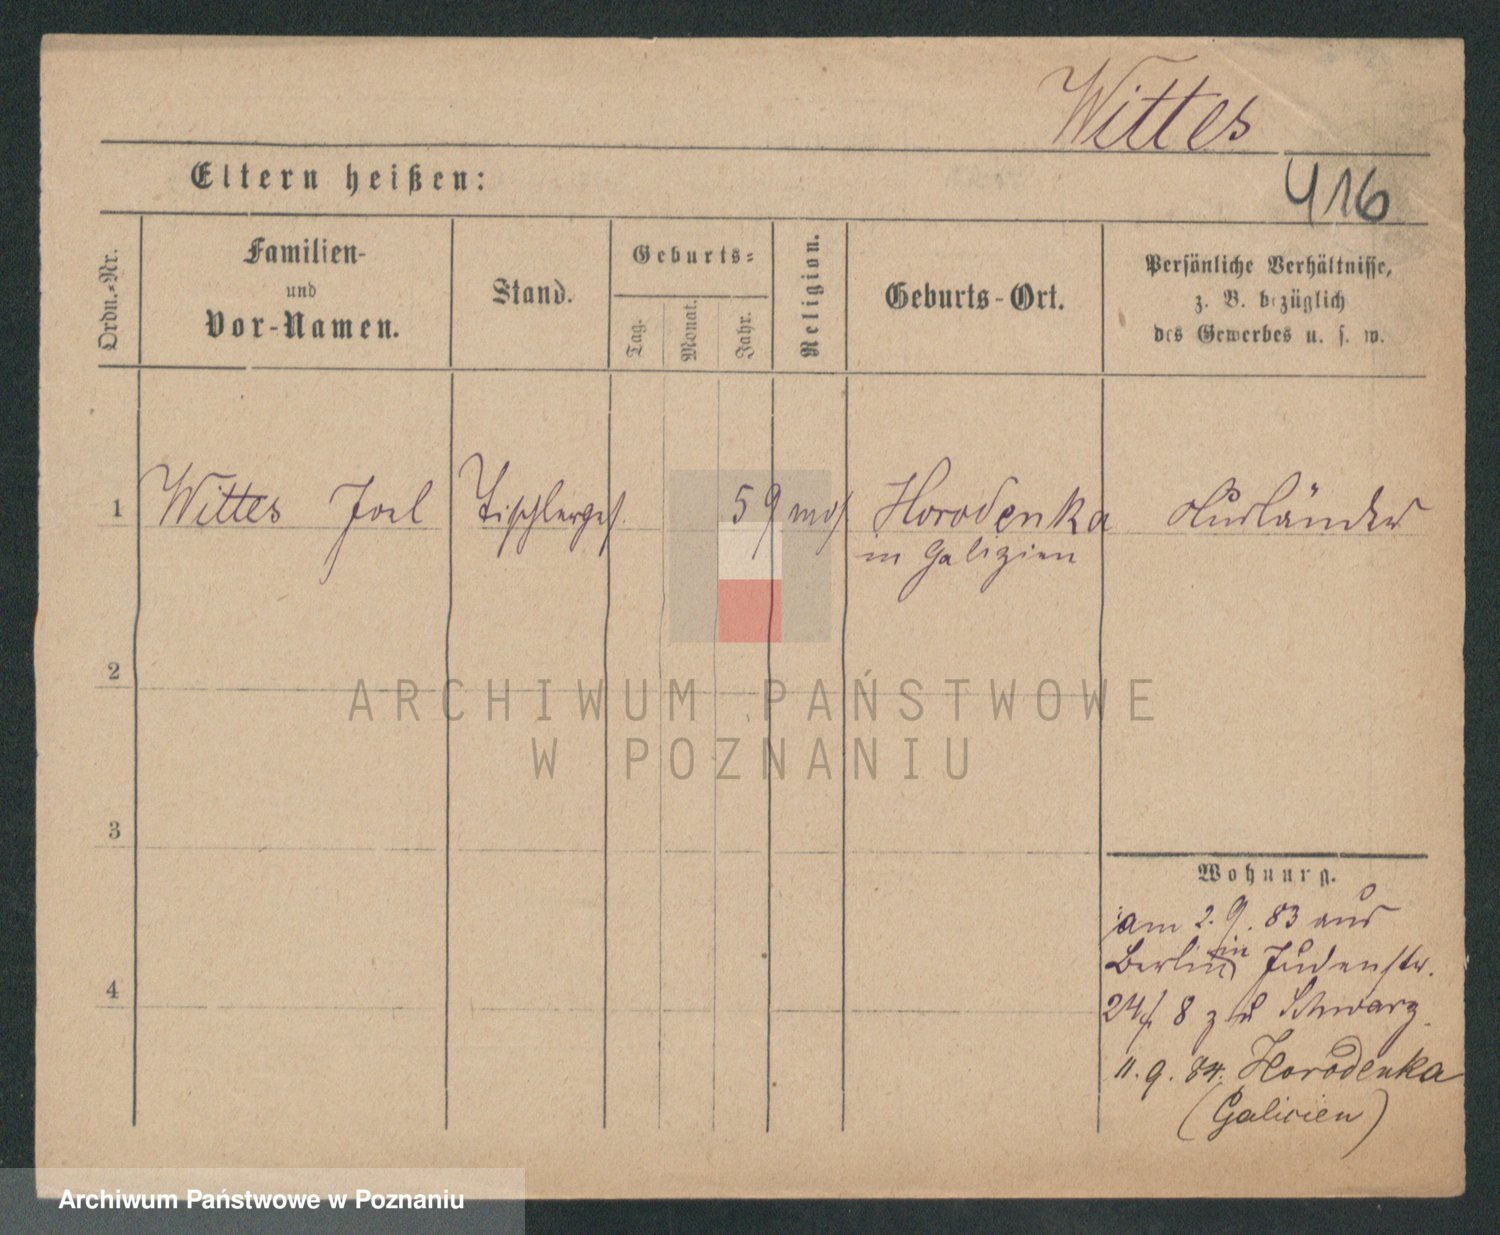 Wittes
416
Eltern heißen:
Ordn.-Nr.
Familien-
und
Vor-Namen.
Stand.
Geburts-
Tag.
Monat.
Jahr.
Religion.
Geburts-Ort.
Persönliche Verhältnisse,
z. B. bezüglich
des Gewerbes u. s. w.
1 Wittes Joel Tischlerges. 59 mos Horodenka Ausländer
in Galizien
2
ARCHIWUM PAŃSTWOWE
W POZNANIU
3
Wohnung.
am 2.9.83 aus
Berlin in Judenstr.
4
24/ 8 zu Schwarz
11.9.84. Horodenka
(Galicien)
Archiwum Państwowe w Poznaniu